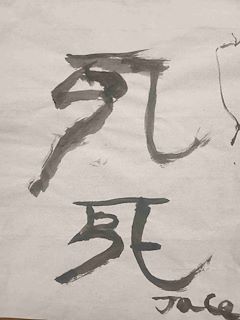 死
死
Jace